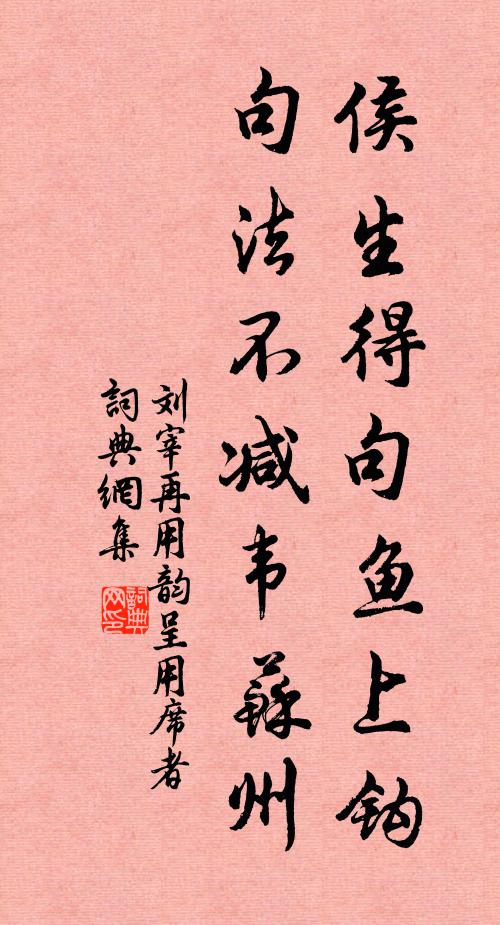 侯生得句鱼上钩
句法不减韦蘇州
刘宰再用韵呈用席者
詞典網集
詞典网印